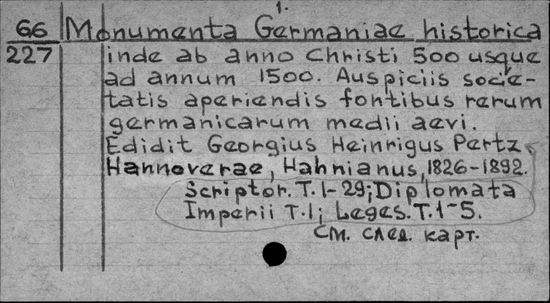 1.
66 Monumenta Germaniae historica
227 inde ab anno Christi 500 usque
ad annum 1500. Auspiciis socie-
tatis aperiendis fontibus rerum
germanicarum medii aevi.
Edidit Georgius Heinrigus Pertz.
Hannoverae, Hahnianus, 1826-1892.
Scriptor. T. 1-29; Diplomata
Imperii T. 1; Leges. T. 1-5.
См. след. карт.